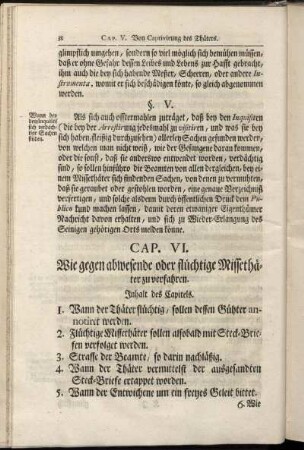 38 CAP. V. Von Captivirung des Thäters.
glimpflich umgehen, sondern so viel möglich sich bemühen müssen,
daß er ohne Gefahr dessen Leibes und Lebens zur Hafft gebracht,
ihm auch die bey sich habende Messer, Scheeren, oder andere In-
strumenta, womit er sich beschädigen könte, so gleich abgenommen
werden.
§. V.
Wann bey
sich verdäch-
tige Sachen
findet.
Als sich auch offtermahlen zuträget, daß bey den Inquisiten
die bey der Arretirung jedesmahl zu visitiren, und was sie bey
sich haben, fleißig durchzusehen) allerley Sachen gefunden werden,
von welchen man nicht weiß, wie der Gefangene daran kommen,
oder die sonst, daß sie anderswo entwendet worden, verdächtig
seynd; so sollen hinführo die Beamte von allen dergleichen, bey ei-
nem Missethäter sich findenden Sachen, von denen zu vermuthen,
daß sie geraubet oder gestohlen worden, eine genaue Verzeichniß
verfertigen, und solche alsdenn durch öffentlichen Druck dem Pu-
blico kund machen lassen, damit deren etwaniger Eigenthümer
Nachricht davon erhalten, und sich zu Wieder-Erlangung des
Seinigen gehörigen Orts melden könne.
CAP. VI.
Wie gegen abwesende oder flüchtige Missethä-
ter zu verfahren.
Inhalt des Capitels.
1. Wann der Thäter flüchtig, sollen dessen Gühter an-
notiret werden.
2. Flüchtige Missethäter sollen alsobald mit Steck-Brie-
fen verfolget werden.
3. Straffe der Beamte, so darin nachläßig.
4. Wann der Thäter vermittelst der ausgesandten
Steck-Briefe ertappet worden.
5. Wann der Entwichene um ein freyes Geleit bittet.
6. Wie